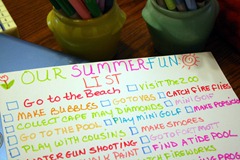 OUR SUMMER FUN
LIST
Go to the Beach
Visit the Zoo
MAKE BUBBLES
Go to VBS
CATCH FIRE FLIES
COLLECT CAPE MAY DIAMONDS
MINI GOLF
MAKE POPSICLES
GO TO THE POOL
PLAY MINI GOLF
PLAY WITH COUSINS
MAKE SMORES
GO TO FORT MOTT
WATER GUN SHOOTING
FIND A TIDE POOL
CHALK PAINT
Go FISHING